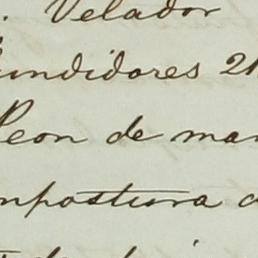 Velador
undidores 2
Peon de man
mpostura